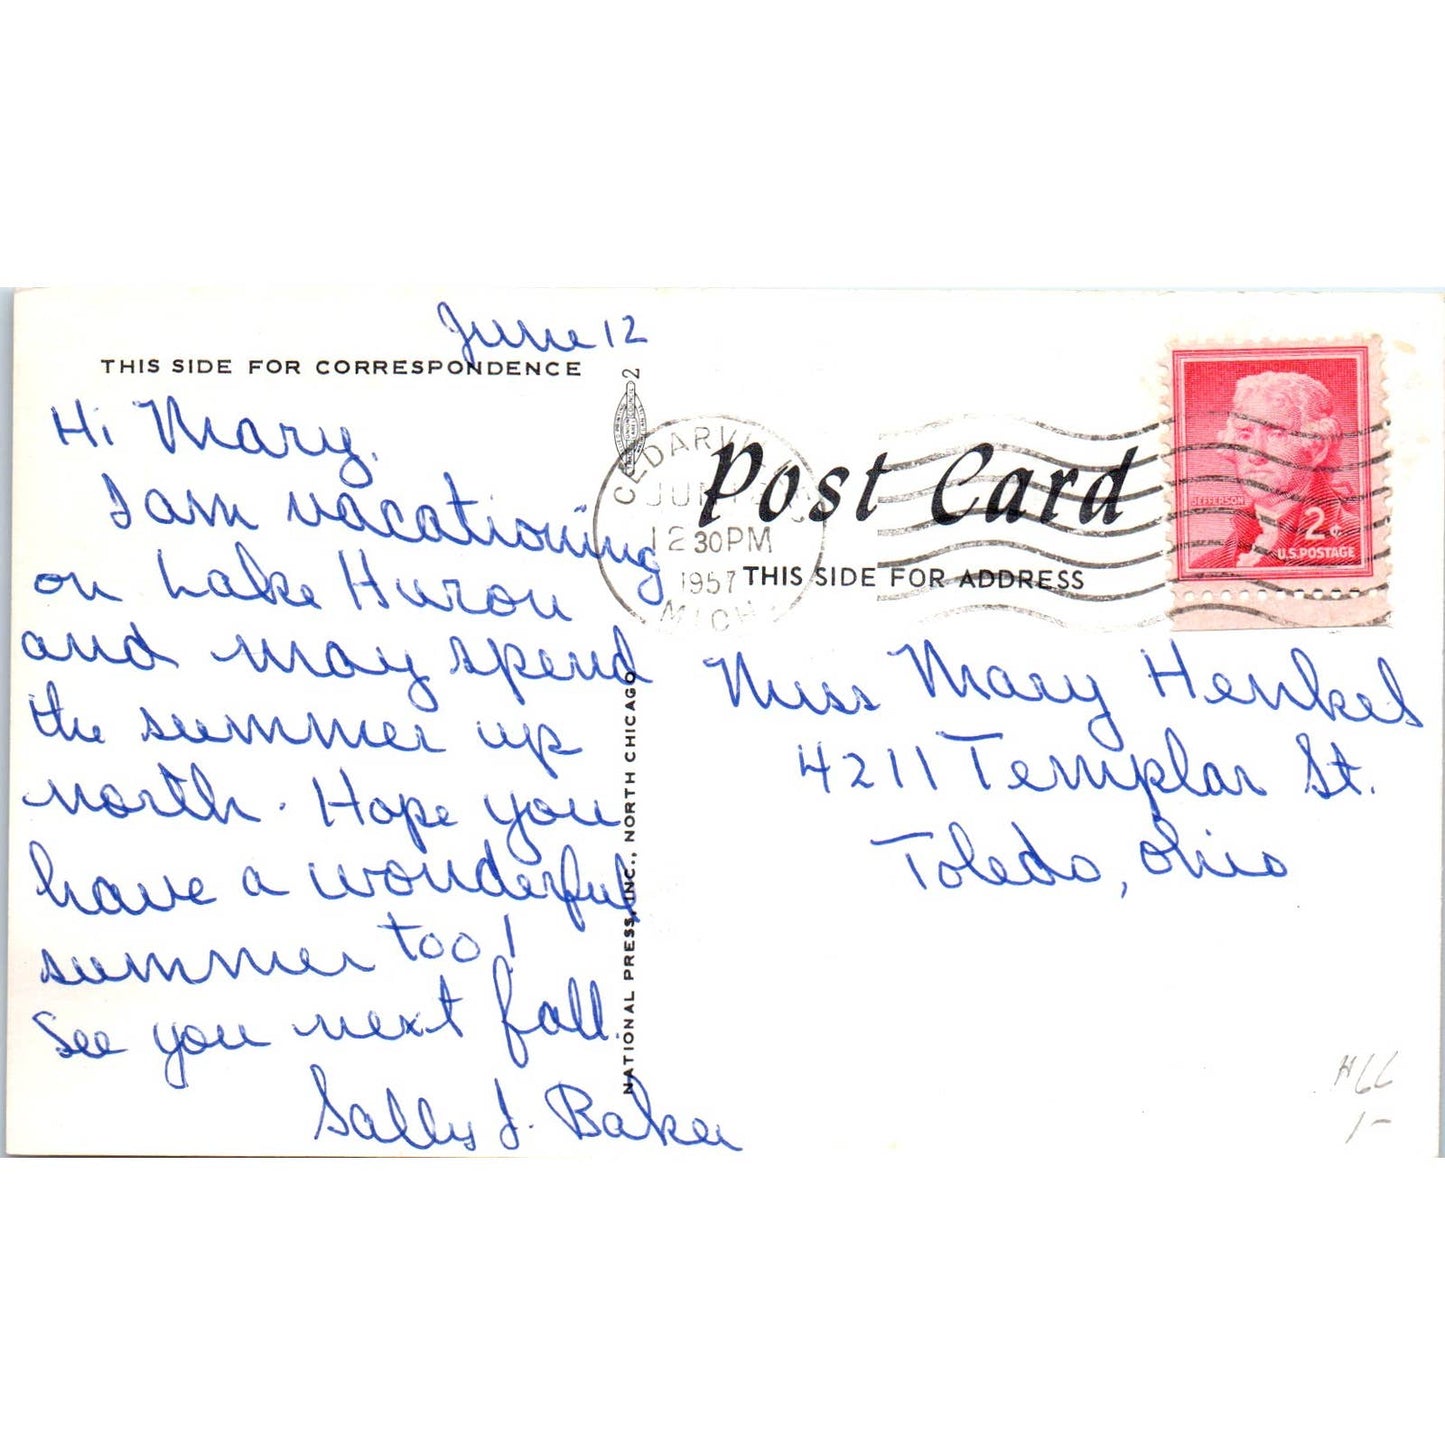 June 12
THIS SIDE FOR CORRESPONDENCE
Hi Mary,
I am vacationing
on Lake Huron
and may spend
the summer up
north. Hope you
have a wonderful
summer too!
See you next fall.
Sally J. Baker
2
NATIONAL PRESS, INC., NORTH CHICAGO
CEDARVILLE
JUN 12
12 30PM
1957
MICH.
Post Card
THIS SIDE FOR ADDRESS
JEFFERSON
2¢
U.S. POSTAGE
Miss Mary Henkel
4211 Templar St.
Toledo, Ohio
H66
1-